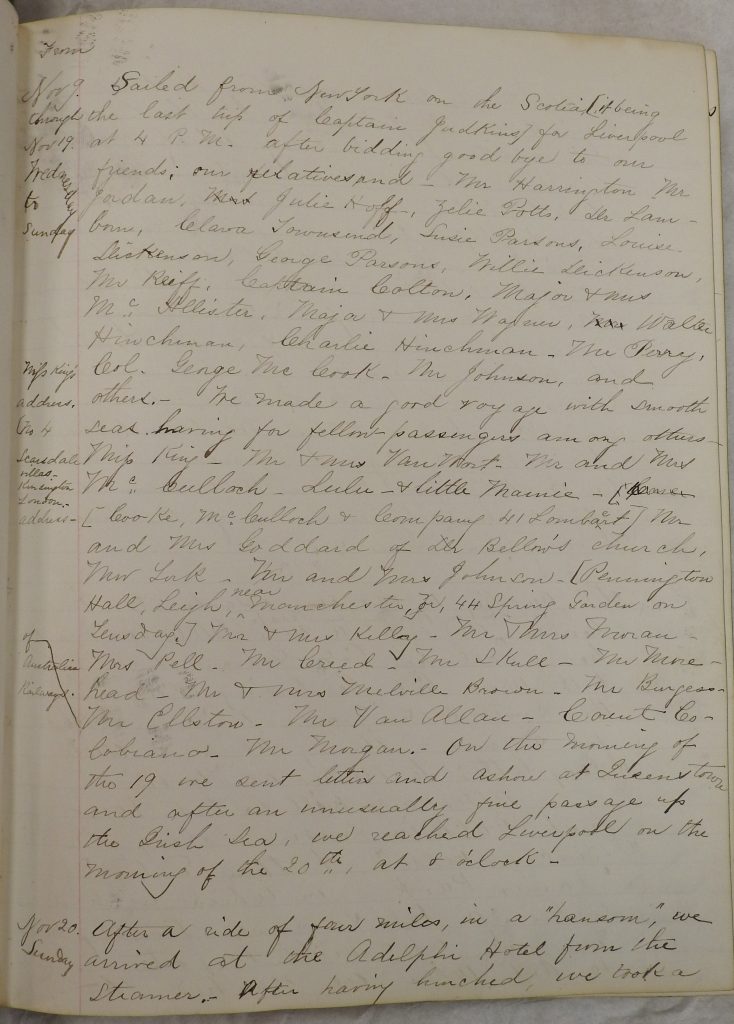 From
Nov 9.
through
Nov 19.
Wednesday
to
Sunday
Sailed from New York on the Scotia [it being
the last trip of Captain Judkins] for Liverpool
at 4 P.M. after bidding good bye to our
friends; our relatives and - Mr Harrington Mr
Jordan, Julie Hoff, Zelie Potts, Dr Lam-
born, Clara Townsend, Susie Parsons, Louise
Dickenson, George Parsons, Willie Dickenson,
Mr Reiff, Captain Colton, Major & Mrs
Mc Allister, Major & Mrs Wagner, Walter
Hinchman, Charlie Hinchman - Mr Perry,
Col. George Mc Cook - Mr Johnson, and
others. - We made a good voyage with smooth
seas having for fellow-passengers among others -
Miss King's
address.
No 4
Scarsdale
villas.
Kinsington
London.
address -
Miss King - Mr & Mrs Van Wort - Mr and Mrs
Mc Culloch - Lulu - & little Mamie -
[Cooke, Mc Culloch & Company 41 Lombart] Mr
and Mrs Goddard of Dr Bellow's church,
New York - Mr and Mrs Johnson - [Pennington
Hall, Leigh, near Manchester, or, 44 Spring Garden on
Teusday.] Mr & Mrs Kelley - Mr & Mrs Moran -
Mrs Pell - Mr Creed - Mr Skull - Mr More-
head - Mr & Mrs Melville Brown - Mr Burgess -
of
Australian
Railways.
Mr Ellston - Mr Van Allan - Count Co-
lobiano - Mr Morgan. - On the morning of
the 19 we sent letters and ashore at Queenstown
and after an unusually fine passage up
the Irish Sea, we reached Liverpool on the
morning of the 20th, at 8 o'clock -
Nov 20.
Sunday
After a ride of four miles, in a "hansom", we
arrived at the Adelphi Hotel from the
steamer. - After having lunched, we took a